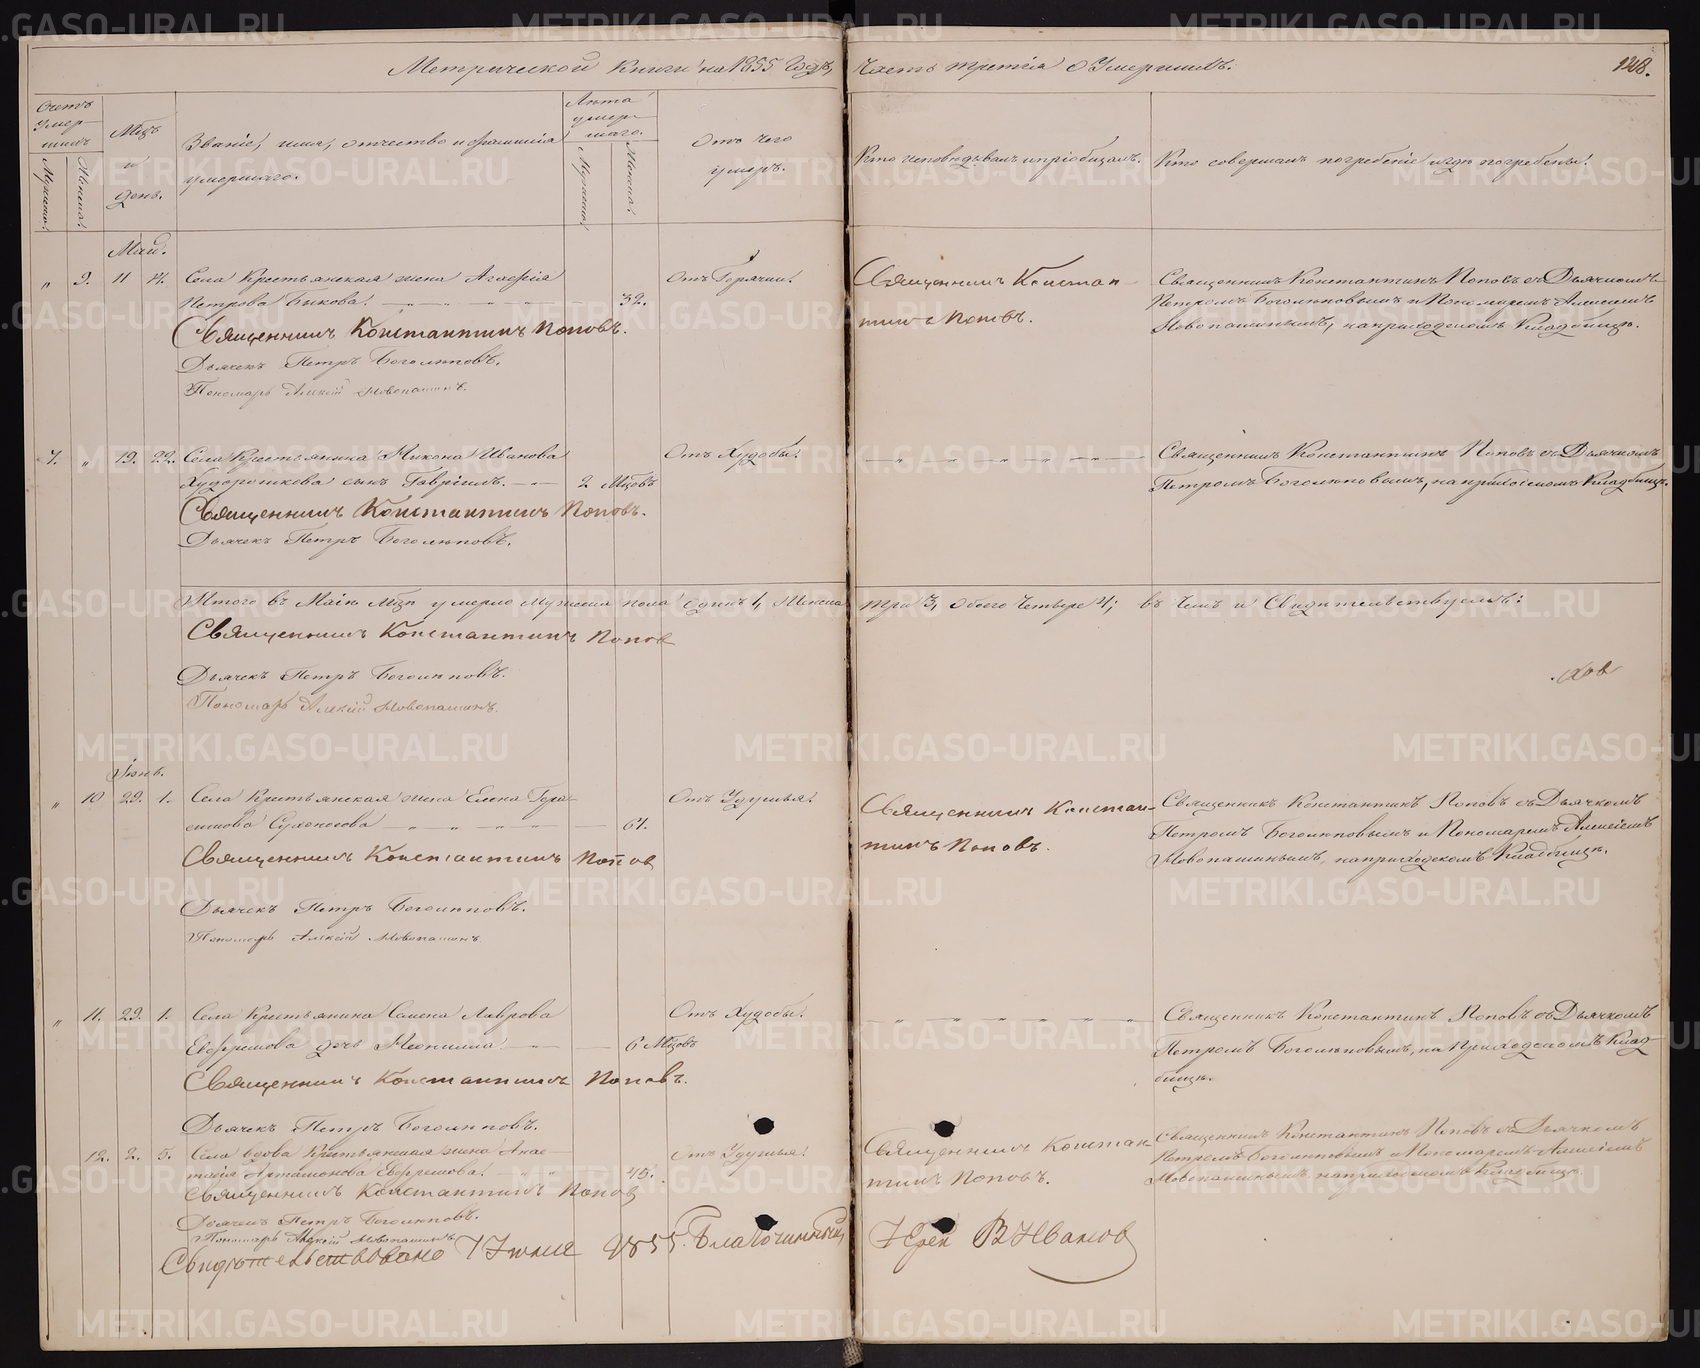 Метрической Книги на 1855 Годъ,
Часть третія о Умершихъ.
128.
Счетъ
Умер-
шихъ
Мужеска.
Женска.
Мцъ
и
день.
Званіе, имя, отчество и фамилія
умершаго.
Лѣта
умер-
шаго.
Мужеска.
Женска.
Отъ чего
умеръ.
Кто исповѣдывалъ и пріобщалъ.
Кто совершалъ погребеніе и гдѣ погребены.
Май.
„ 9. 11 14. Села Крестьянская жена Агафія
Петрова Быкова. 32.
Отъ Горячки.
Священникъ Константинъ Поповъ.
Дьячекъ Петръ Боголюповъ.
Пономарь Алексій Новопашинъ.
Священникъ Констан-
тинъ Поповъ.
Священникъ Константинъ Поповъ съ Дьячкомъ
Петромъ Боголюповымъ и Пономаремъ Алексіемъ
Новопашинымъ, на приходскомъ Кладбищѣ.
„ 19. 22. Села Крестьянина Никона Иванова
Худорошкова сынъ Гавріилъ. 2 Мцовъ
Отъ Худобы.
Священникъ Константинъ Поповъ.
Дьячекъ Петръ Боголюповъ.
Священникъ Константинъ Поповъ съ Дьячкомъ
Петромъ Боголюповымъ, на приходскомъ Кладбищѣ.
Итого въ Маіи Мцѣ умерло Мужеска пола одинъ 1, Женска
три 3, обоего Четыре 4; въ чемъ и Свидѣтельствуемъ:
Священникъ Константинъ Попов
Дьячекъ Петръ Боголюповъ.
Пономарь Алексій Новопашинъ.
Іюнь.
„ 10 29. 1. Села Крестьянская жена Елена Гера-
симова Сухоносова 61.
Отъ Удушья.
Священникъ Константинъ Попов
Дьячекъ Петръ Боголюповъ.
Пономарь Алексій Новопашинъ.
Священникъ Констан-
тинъ Поповъ.
Священникъ Константинъ Поповъ съ Дьячкомъ
Петромъ Боголюповымъ и Пономаремъ Алексіемъ
Новопашинымъ, на приходскомъ Кладбищѣ.
„ 11. 29. 1. Села Крестьянина Семена Лаврова
Евфремова дочь Неонилла. 6 Мцовъ
Отъ Худобы.
Священникъ Константинъ Поповъ.
Дьячекъ Петръ Боголюповъ.
Священникъ Константинъ Поповъ съ Дьячкомъ
Петромъ Боголюповымъ, на Приходскомъ Клад-
бищѣ.
12. 2. 5. Села вдова Крестьянская жена Анас-
тасія Артамонова Евфремова. 45.
Отъ Удушья.
Священникъ Константинъ Попов
Дьячекъ Петръ Боголюповъ.
Пономарь Алексій Новопашинъ.
Священникъ Констан
тинъ Поповъ.
Священникъ Константинъ Поповъ съ Дьячкомъ
Петромъ Боголюповымъ и Пономаремъ Алексіемъ
Новопашинымъ, на приходскомъ Кладбищѣ.
Свидѣтельствовано 7 Іюня 1855. Благочинный
Іерей В Ивановъ
METRIKI.GASO-URAL.RU